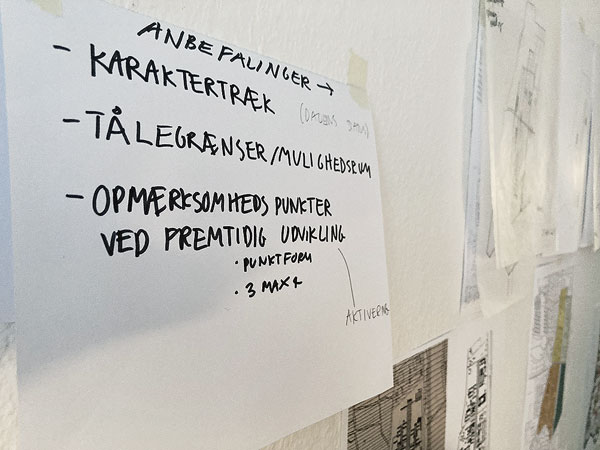 ANBEFALINGER →
- KARAKTERTRÆK
- TÅLEGRÆNSER/MULIGHEDSRUM
- OPMÆRKSOMHEDSPUNKTER
VED FREMTIDIG UDVIKLING
· PUNKTFORM
· 3 MAX 4
AKTIVERING